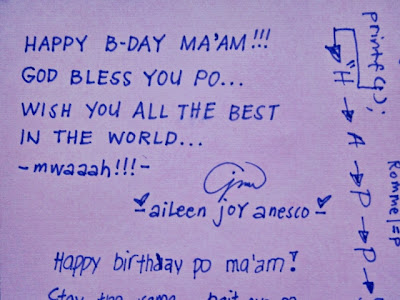 HAPPY B-DAY MA'AM!!!
GOD BLESS YOU PO...
WISH YOU ALL THE BEST
IN THE WORLD...
-mwaaah!!!-
-aileen joy anesco-
Happy birthday po ma'am!
Stay the same
printf();
"H → A → P → P →
Romme|=p